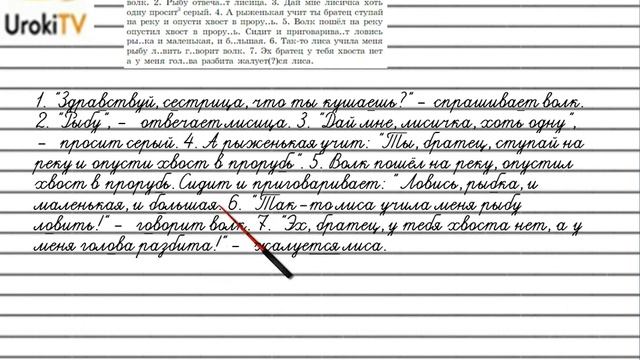 UrokiTV
волк. 2. Рыбу отвеча..т лисица. 3. Дай мне лисичка хоть
одну просит серый. 4. А рыженькая учит ты братец ступай
на реку и опусти хвост в прору..ь. 5. Волк пошёл на реку
опустил хвост в прору..ь. Сидит и приговарива..т ловись
ры..ка и маленькая, и б..льшая. 6. Так-то лиса учила меня
рыбу л..вить г..ворит волк. 7. Эх братец у тебя хвоста нет
а у меня гол..ва разбита жалует(?)ся лиса.
1. "Здравствуй, сестрица, что ты кушаешь?" - спрашивает волк.
2. "Рыбу", - отвечает лисица. 3. "Дай мне, лисичка, хоть одну",
- просит серый. 4. А рыженькая учит: "Ты, братец, ступай на
реку и опусти хвост в прорубь". 5. Волк пошёл на реку, опустил
хвост в прорубь. Сидит и приговаривает: "Ловись, рыбка, и
маленькая, и большая. 6. "Так-то лиса учила меня рыбу
ловить!" - говорит волк. 7. "Эх, братец, у тебя хвоста нет, а у
меня голова разбита!" - жалуется лиса.